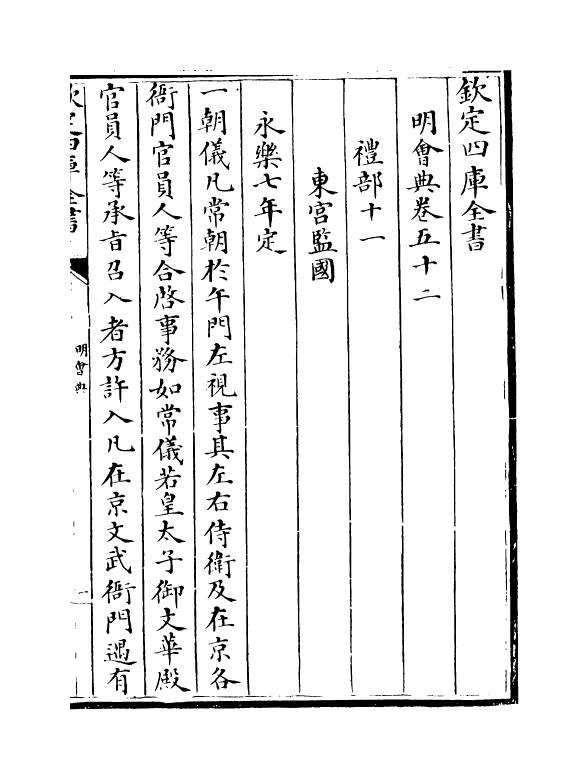 欽定四庫全書
明會典卷五十二
禮部十一
東宮監國
永樂七年定
一朝儀凡常朝於午門左視事其左右侍衛及在京各
衙門官員人等合啓事務如常儀若皇太子御文華殿
官員人等承旨召入者方許入凡在京文武衙門遇有
欽定四庫全書
明會典
一